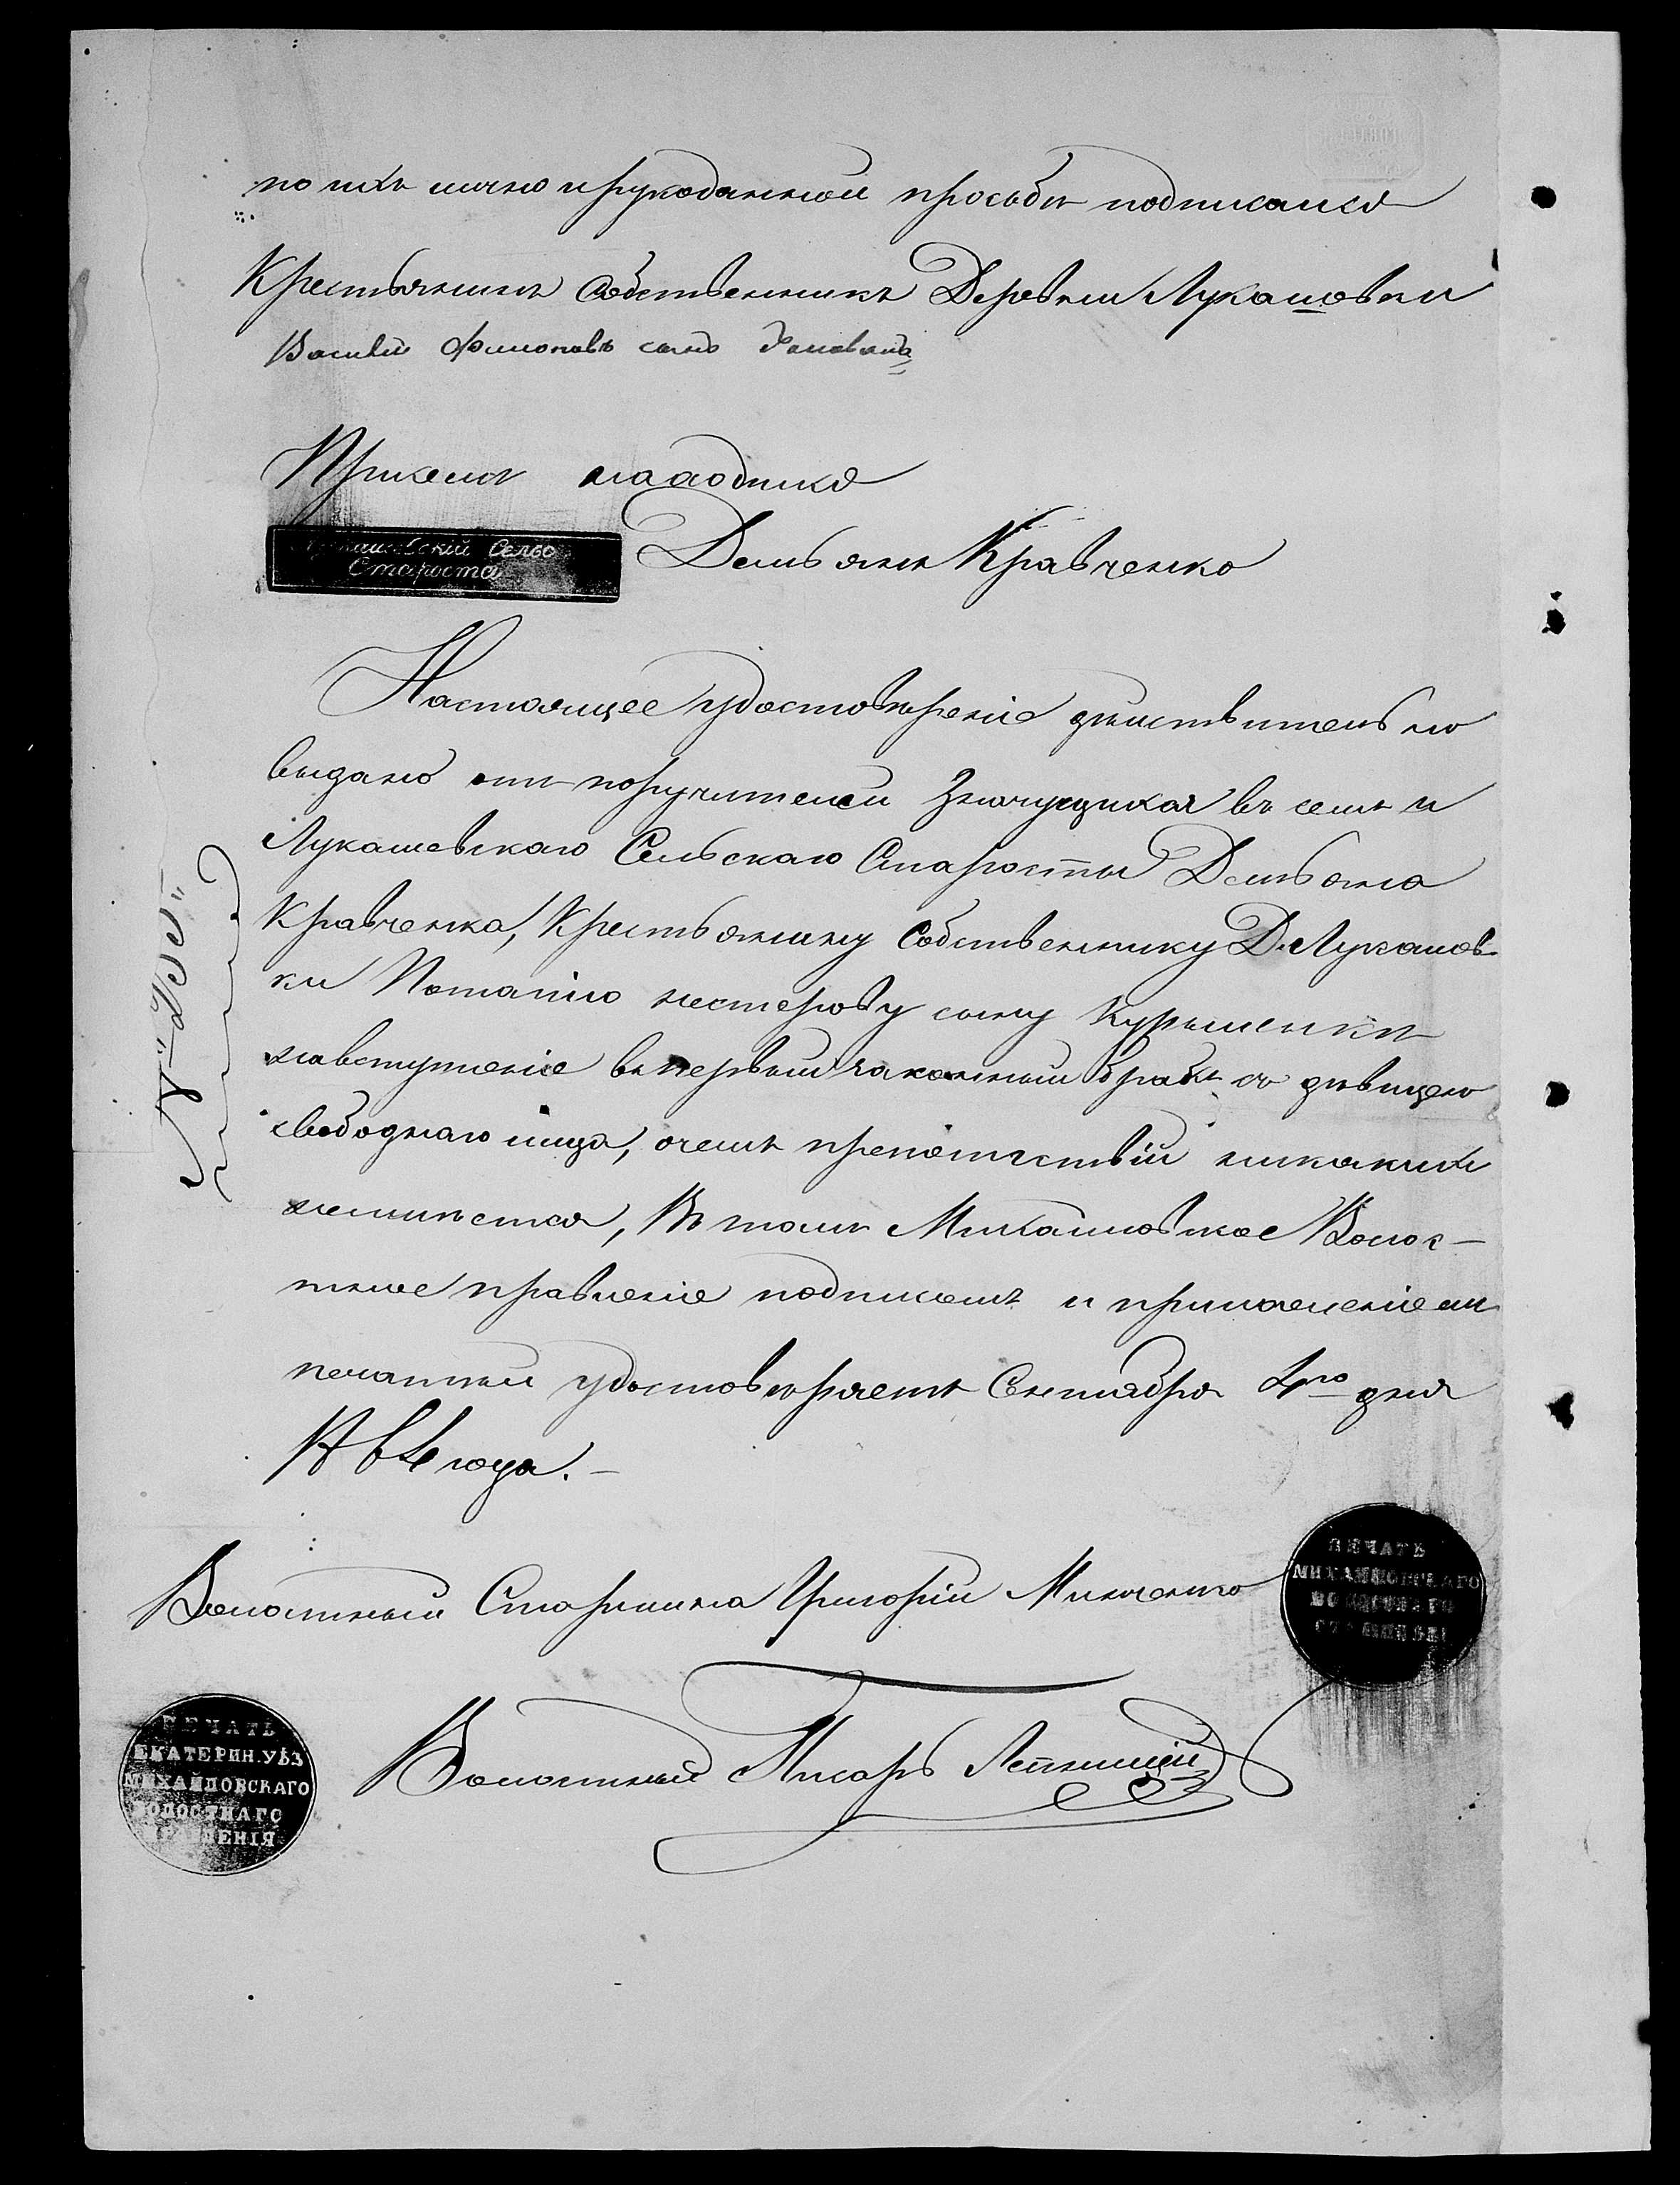 по ихъ лично и рукоданной прозьбѣ подписался
Крестьянинъ Собственникъ Деревни Лукашовки
Василій Филиповъ сынъ
При семъ находился
Лукашевскій Сельс
Староста
Демьянъ Кравченко
Настоящее удостовѣреніе дѣйствительно
выдано отъ поручителей значущихся въ семъ и
Лукашевскаго Сельскаго Старосты Демьяна
Кравченка, Крестьянину Собственнику Д. Лукашов-
ки Потапію нестерову сыну Курыленкѣ
навступленіе въ первый законный бракъ съ дѣвицею
свободнаго лица, очемъ препятствій никакихъ
неимѣется, Въ томъ Михайловское Волос-
тное правленіе подписомъ и приложеніемъ
печатей удостовѣряетъ Сентября 4го дня
года.
Волостный Старшина Григорій Минченко
ПЕЧАТЬ
МИХАЙЛОВСКАГО
ВОЛОСТНАГО
СТАРШИНЫ
Волостный Писарь
ПЕЧАТЬ
ЕКАТЕРИН. УѢЗ
МИХАЙЛОВСКАГО
ВОЛОСТНАГО
ПРАВЛЕНІЯ